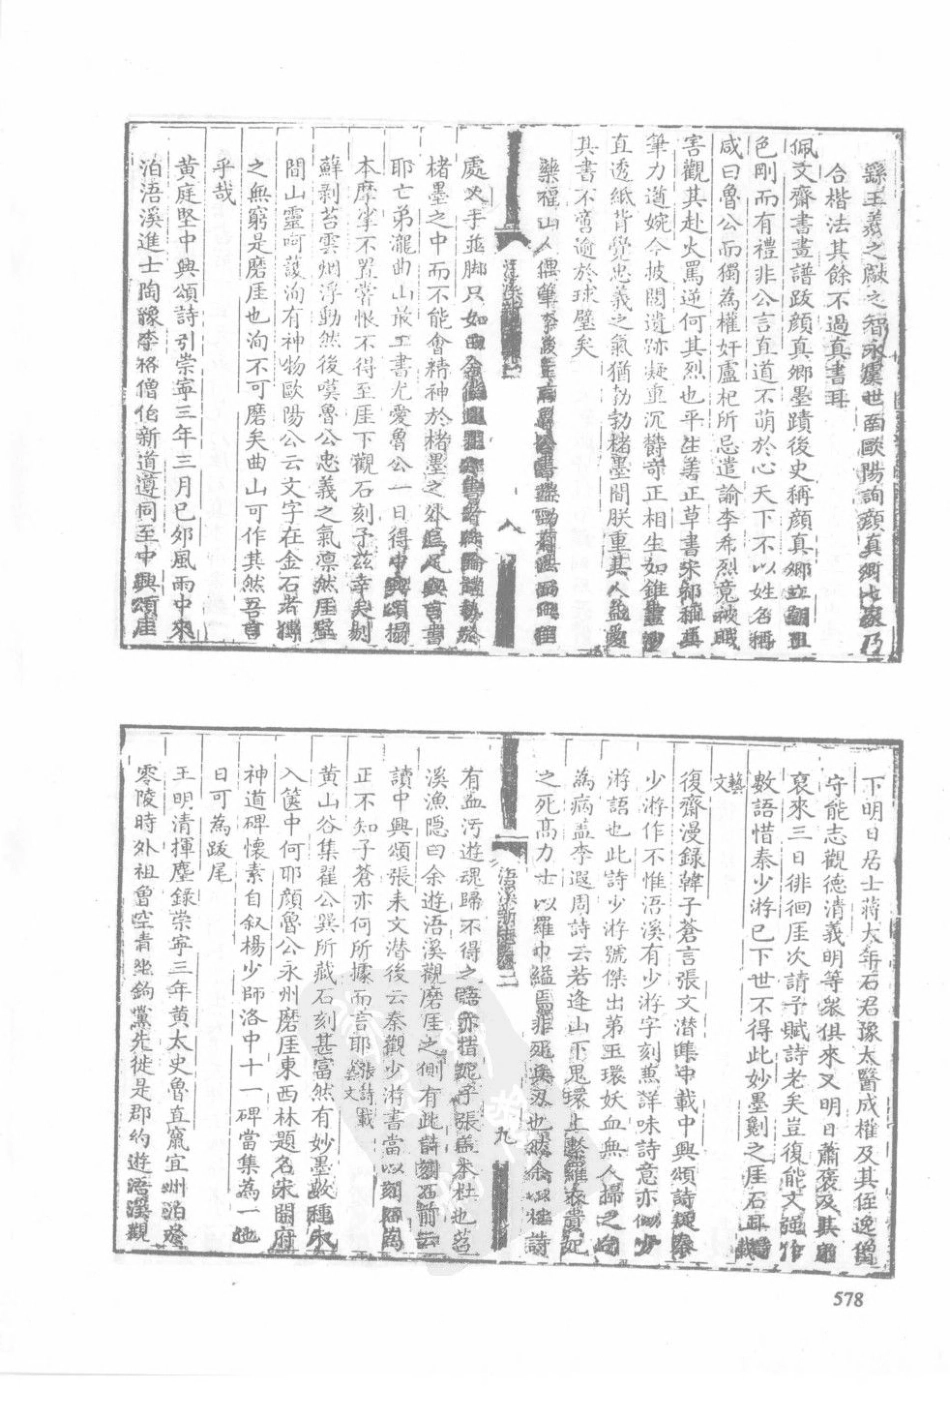 繇王羲之獻之智永虞世南歐陽詢顏真卿七家乃
合楷法其餘不過真書耳
佩文齋書畫譜跋顏真卿墨蹟後史稱顏真卿立朝正
色剛而有禮非公言直道不萌於心天下不以姓名稱
咸曰魯公而獨為權奸盧杞所忌遣諭李希烈竟被賊
害觀其赴火罵逆何其烈也平生善正草書宋
筆力遒婉今披閱遺跡凝重沉欝奇正相生如錐
直透紙背覺忠義之氣猶勃勃楮墨間朕重其人益愛
其書不啻逾於球璧矣
藥福山人偶筆
處义手並脚只如
楮墨之中而不能會精神於楮墨之外
耶亡弟瀧曲山最工書尤愛魯公一日得中興頌搨
本摩挲不置嘗恨不得至厓下觀石刻予茲幸矣剔
蘚剥苔雲烟浮動然後嘆魯公忠義之氣凛然厓壁
間山靈呵護洵有神物歐陽公云文字在金石者
之無窮是磨厓也洵不可磨矣曲山可作其然吾言
乎哉
黃庭堅中興頌詩引崇寧三年三月己夘風雨中來
泊浯溪進士陶豫李格僧伯新道遵同至中興頌崖
下明日居士蔣大年石君豫太醫成權及其侄逸僧
守能志觀德清義明等衆俱來又明日蕭褒及其弟
裒來三日徘徊厓次請予賦詩老矣豈復能文强作
數語惜秦少游已下世不得此妙墨劖之厓石耳
藝文
復齋漫録韓子蒼言張文潛集中載中興頌詩疑秦
少游作不惟浯溪有少游字刻蒹詳味詩意亦似少
游語也此詩少游號傑出第玉環妖血無人掃之句
為病盖李遐周詩云若逢山下鬼環上繫羅衣貴妃
之死高力士以羅巾縊焉非死兵刃也
有血污遊魂歸不得之語亦指妃子張盖本杜也苕
溪漁隱曰余遊浯溪觀磨厓之側有此詩刻石前云
讀中興頌張耒文潛後云秦觀少游書當以刻石為
正不知子蒼亦何所據而言耶張詩載藝文
黃山谷集翟公巽所藏石刻甚富然有妙墨數種不
入篋中何耶顏魯公永州磨厓東西林題名宋開府
神道碑懷素自叙楊少師洛中十一碑當集為一也
日可為跋尾
王明清揮塵録崇寧三年黃太史魯直竄宜州泊
零陵時外祖曾空青坐鉤黨先徙是郡約遊浯溪觀
浯溪新志卷二
八
浯溪新志卷二
九
578